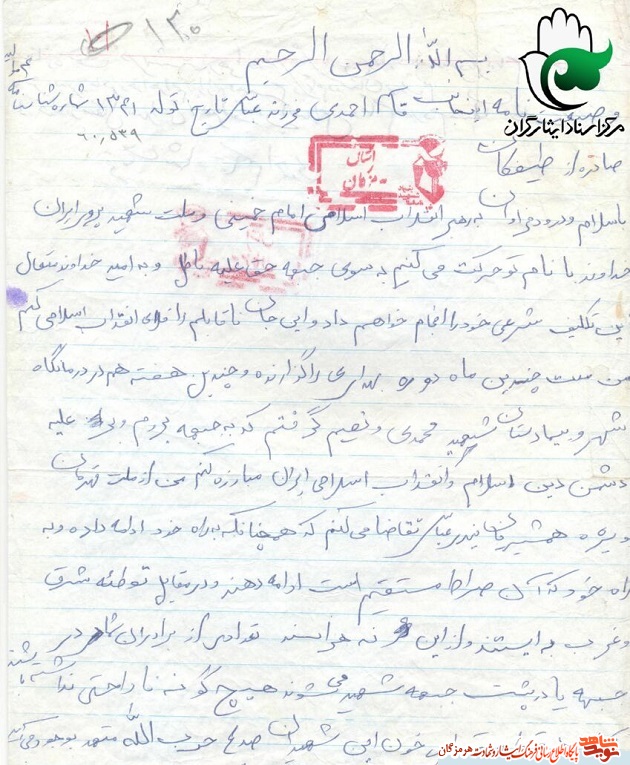 ۱۳۰
بسم الله الرحمن الرحیم
مرکز اسناد ایثارگران
وصیت نامه اینجانب قاسم احمدی فرزند عباس تاریخ تولد ۱۳۴۱ شماره شناسنامه
۶۰۵۳۹
صادره از
استان
هرمزگان
باسلام و درود فراوان به رهبر انقلاب اسلامی امام خمینی و ملت شهید پرور ایران
خداوندا با نام تو حرکت می کنیم به سوی جبهه حق علیه باطل و به امید خداوند متعال
این تکلیف شرعی خود را انجام خواهم داد و این جان ناقابلم را فدای انقلاب اسلامی کنم
من مدت چندین ماه دوره بهداری را گذارنده و چندین هفته هم در درمانگاه
شهر و بیمارستان شهید محمدی و تصمیم گرفتم که به جبهه بروم و بر علیه
دشمن دین اسلام و انقلاب اسلامی ایران مبارزه کنم من از ملت قهرمان
ویژه همشهریان بندرعباس تقاضا می کنم که همچنانکه به راه خود ادامه داده و به
راه خود که آن صراط مستقیم است ادامه دهند و در مقابل توطئه شرق
و غرب به ایستند و از این نه هراسند تعدادی از برادران شما در
جبهه یا در پشت جبهه شهید می شوند هیچ گونه ناراحتی نداشته باشند
خون این شهیدان صدها حزب الله متعهد بوجود می آید
نوید شاهد
پایگاه اطلاع رسانی فرهنگ ایثار و شهادت هرمزگان